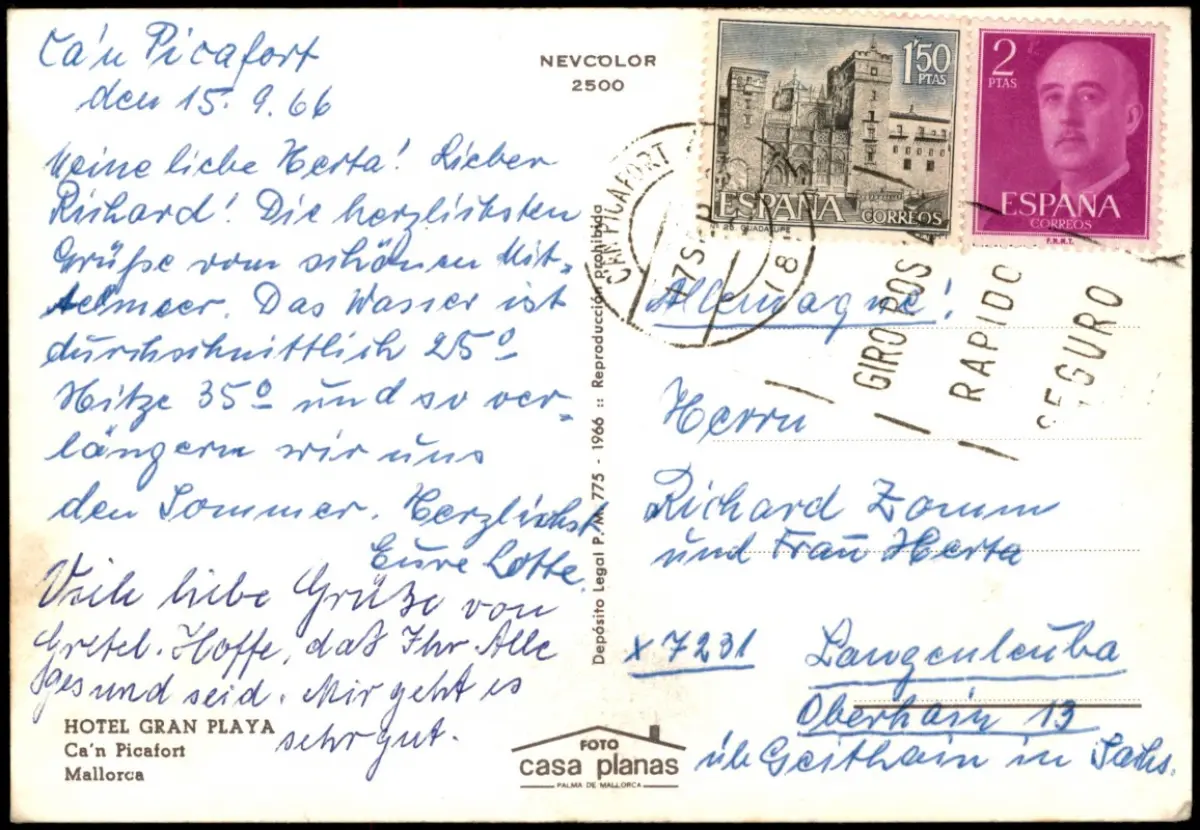 Ca'n Picafort
den 15.9.66
Meine liebe Herta! Lieber
Richard! Die herzlichsten
Grüße vom schönen Mit-
telmeer. Das Wasser ist
durchschnittlich 25°
Hitze 35° und so ver-
längern wir uns
den Sommer. Herzlichst
Eure Lotte.
Viele liebe Grüße von
Gretel. Hoffe, daß Ihr Alle
gesund seid. Mir geht es
sehr gut.
HOTEL GRAN PLAYA
Ca'n Picafort
Mallorca
NEVCOLOR
2500
Depósito Legal P. M. 775 - 1966 :: Reproducción prohibida
1'50
PTAS
ESPAÑA
CORREOS
Nº 25. GUADALUPE
2
PTAS
ESPAÑA
CORREOS
F.N.M.T.
CA'N PICAFORT
18
GIRO POS
RAPIDO
SEGURO
Allemagne!
Herrn
Richard Zomm
und Frau Herta
x 7231 Langenleuba
Oberhain 13
üb Geithain in Sachs.
FOTO
casa planas
PALMA DE MALLORCA